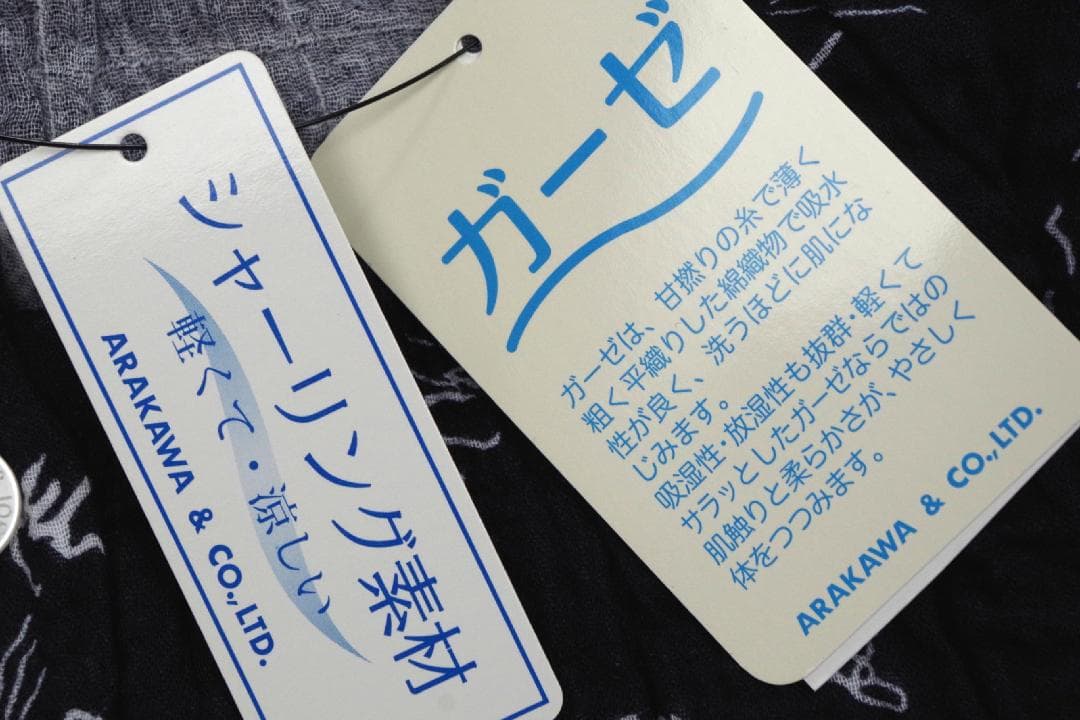 シャーリング素材
軽くて・涼しい
ARAKAWA & CO.,LTD.
ガーゼ
ガーゼは、甘撚りの糸で薄く
粗く平織りした綿織物で吸水
性が良く、洗うほどに肌にな
じみます。
吸湿性・放湿性も抜群・軽くて
サラッとしたガーゼならではの
肌触りと柔らかさが、やさしく
体をつつみます。
ARAKAWA & CO.,LTD.